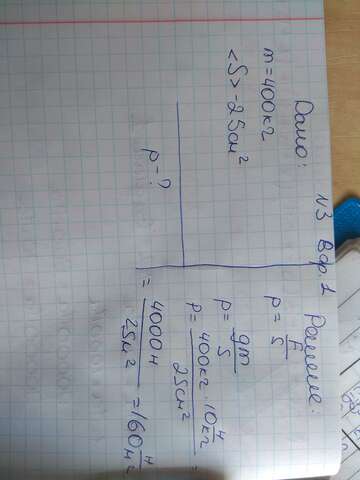 N3 Вар. 1
Дано:
m = 400 кг
<S> - 25 см²
p - ?
Решение:
p = F/S
p = gm/S
p = 400 кг · 10 н/кг / 25 см² =
= 4000 н / 25 м² = 160 н/м²